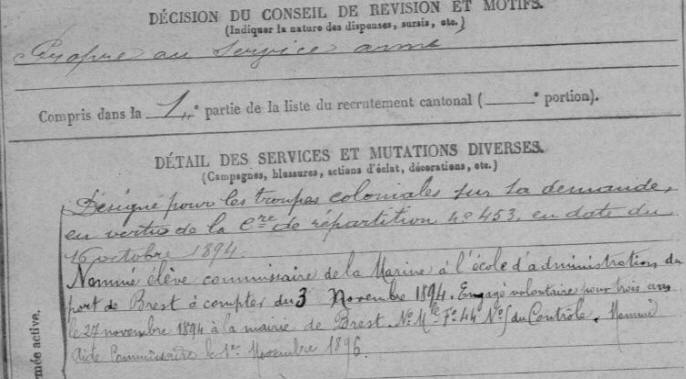 DÉCISION DU CONSEIL DE REVISION ET MOTIFS.
(Indiquer la nature des dispenses, sursis, etc.)
Propre au service armé
Compris dans la 1re partie de la liste du recrutement cantonal ( e portion).
DÉTAIL DES SERVICES ET MUTATIONS DIVERSES.
(Campagnes, blessures, actions d'éclat, décorations, etc.)
Désigné pour les troupes coloniales sur sa demande,
en vertu de la Cre de répartition No 453, en date du
16 octobre 1894.
Nommé élève commissaire de la Marine à l'école d'administration du
port de Brest à compter du 3 Novembre 1894. Engagé volontaire pour trois ans
le 27 novembre 1894 à la mairie de Brest. No Mle Fo 44 No du Contrôle. Nommé
Aide Commissaire le 1er Novembre 1896.
rmée active.